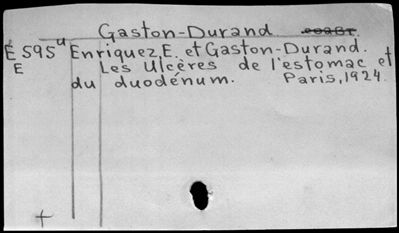 Gaston-Durand
E595u Enriquez, E. et Gaston-Durand.
E Les Ulcères de l'estomac et
du duodénum. Paris, 1924.